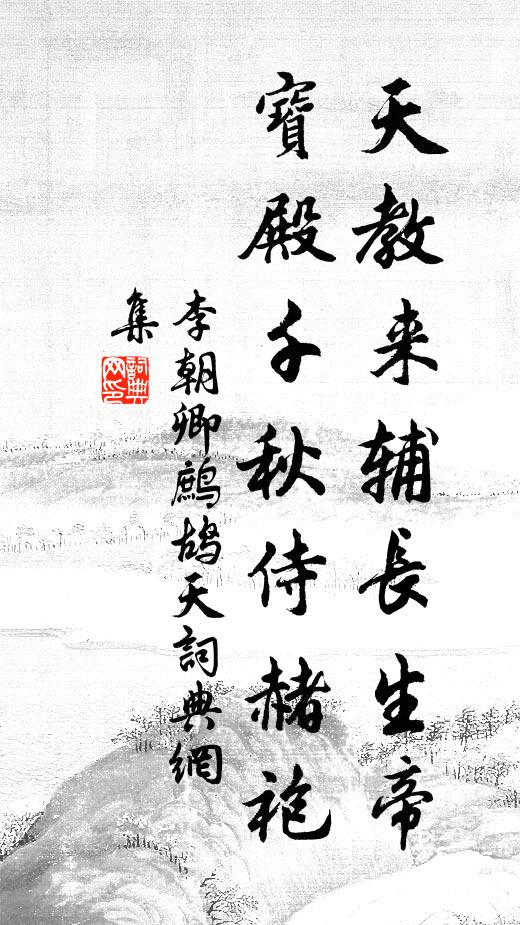 天教来辅長生帝
寶殿千秋侍赭袍
李朝卿鷓鴣天詞典網
集
詞典网印